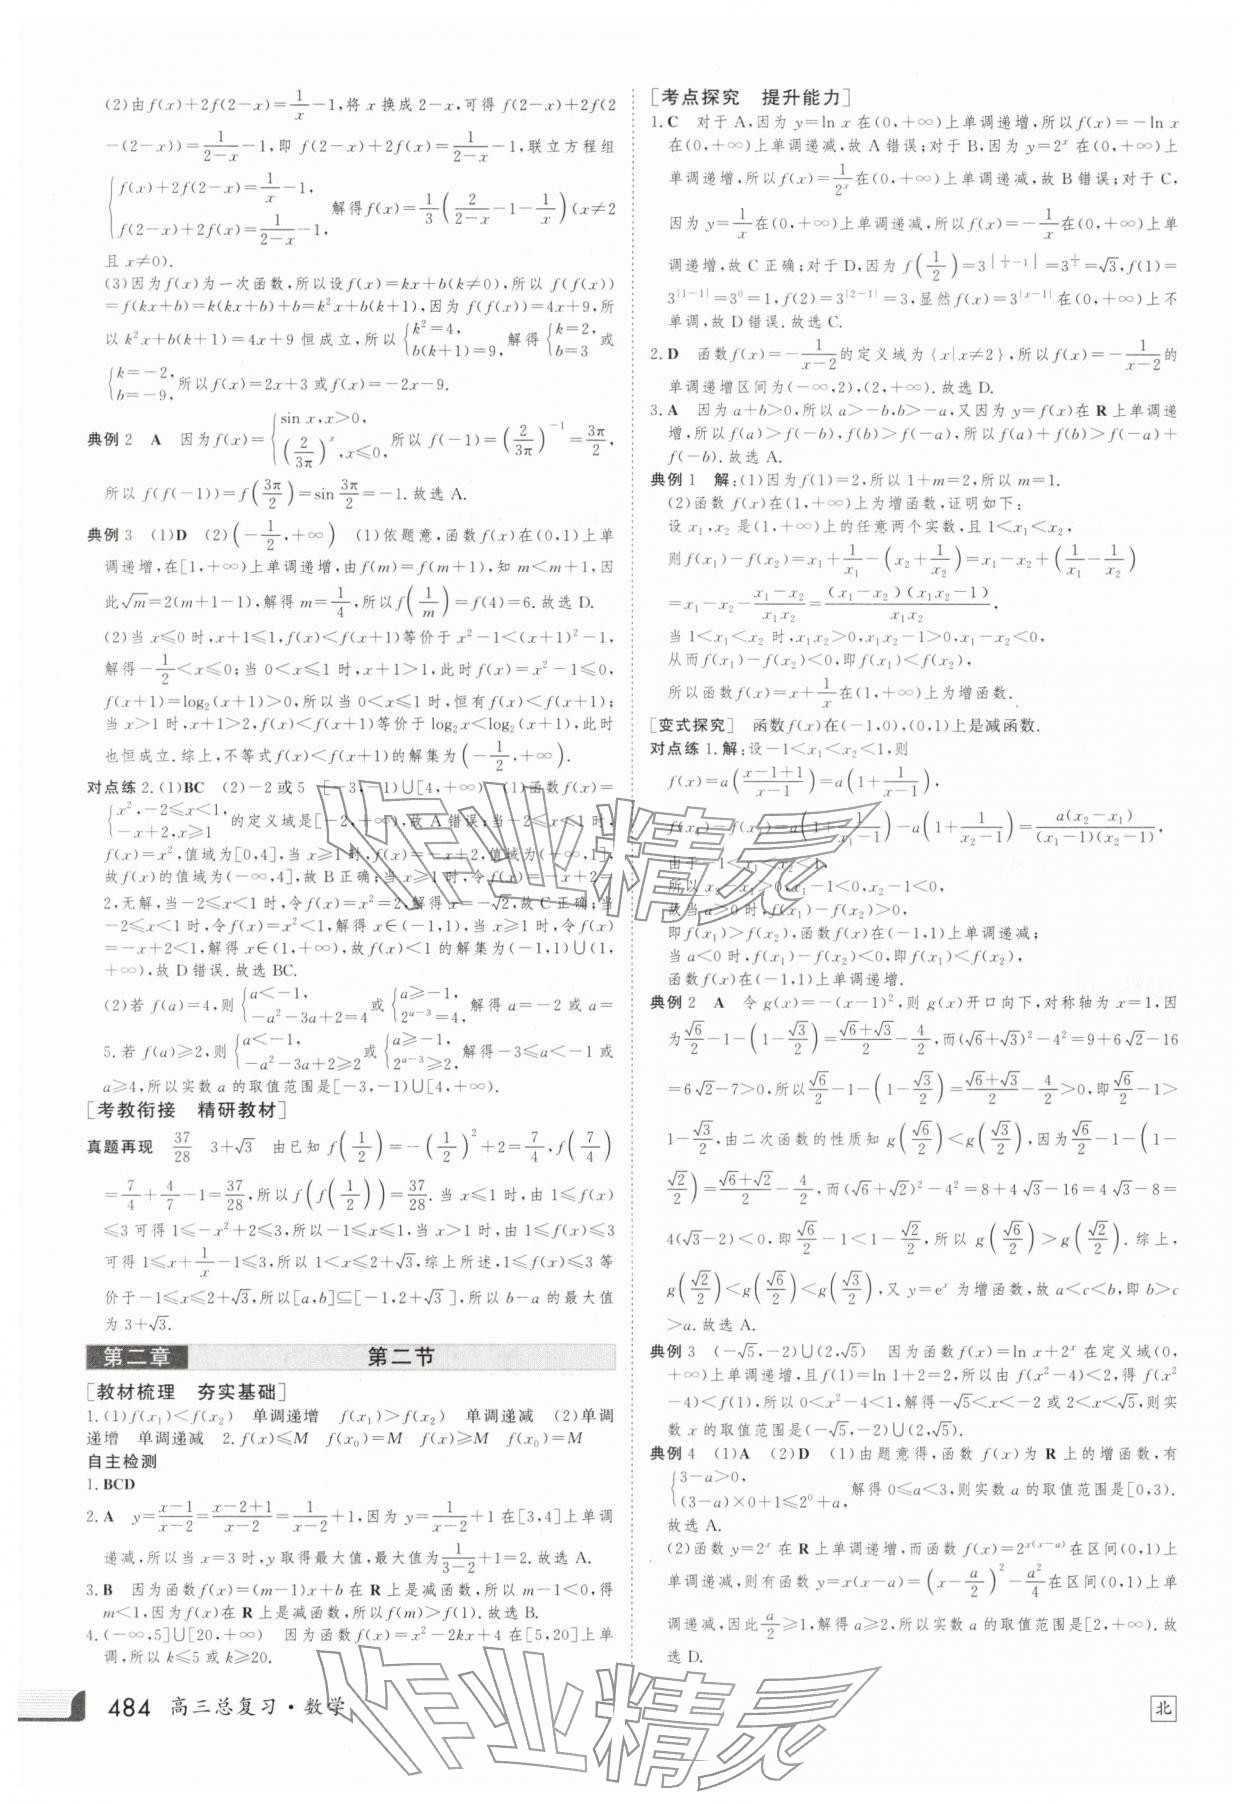 (2)由f(x)+2f(2-x)=1/x-1,将x换成2-x,可得f(2-x)+2f(2
-(2-x))=1/(2-x)-1,即f(2-x)+2f(x)=1/(2-x)-1,联立方程组
{f(x)+2f(2-x)=1/x-1,
f(2-x)+2f(x)=1/(2-x)-1, 解得f(x)=1/3(2/(2-x)-1-1/x)(x≠2
且x≠0).
(3)因为f(x)为一次函数,所以设f(x)=kx+b(k≠0),所以f(f(x))
=f(kx+b)=k(kx+b)+b=k²x+b(k+1),因为f(f(x))=4x+9,所
以k²x+b(k+1)=4x+9恒成立,所以{k²=4, b(k+1)=9, 解得{k=2, b=3 或
{k=-2, b=-9, 所以f(x)=2x+3或f(x)=-2x-9.
典例2 A 因为f(x)={sin x,x>0, (2/3π)^x,x≤0, 所以f(-1)=(2/3π)^-1=3π/2,
所以f(f(-1))=f(3π/2)=sin 3π/2=-1.故选A.
典例3 (1)D (2)(-1/2,+∞) (1)依题意,函数f(x)在(0,1)上单
调递增,在[1,+∞)上单调递增,由f(m)=f(m+1),知m<m+1,因
此√m=2(m+1-1),解得m=1/4,所以f(1/m)=f(4)=6.故选D.
(2)当x≤0时,x+1≤1,f(x)<f(x+1)等价于x²-1<(x+1)²-1,
解得-1/2<x≤0;当0<x≤1时,x+1>1,此时f(x)=x²-1≤0,
f(x+1)=log₂(x+1)>0,所以当0<x≤1时,恒有f(x)<f(x+1);
当x>1时,x+1>2,f(x)<f(x+1)等价于log₂x<log₂(x+1),此时
也恒成立.综上,不等式f(x)<f(x+1)的解集为(-1/2,+∞).
对点练2.(1)BC (2)-2或5 [-3,-1)∪[4,+∞) (1)函数f(x)=
{x²,-2≤x<1, -x+2,x≥1 的定义域是[-2,+∞),故A错误;当-2≤x<1时,
f(x)=x²,值域为[0,4],当x≥1时,f(x)=-x+2,值域为(-∞,1],
故f(x)的值域为(-∞,4],故B正确;当x≥1时,令f(x)=-x+2=
2,无解,当-2≤x<1时,令f(x)=x²=2,解得x=-√2,故C正确;当
-2≤x<1时,令f(x)=x²<1,解得x∈(-1,1),当x≥1时,令f(x)=
-x+2<1,解得x∈(1,+∞),故f(x)<1的解集为(-1,1)∪(1,
+∞),故D错误.故选BC.
(2)若f(a)=4,则{a<-1, -a²-3a+2=4 或{a≥-1, 2^(a-3)=4, 解得a=-2或a=
5.若f(a)≥2,则{a<-1, -a²-3a+2≥2 或{a≥-1, 2^(a-3)≥2, 解得-3≤a<-1或
a≥4,所以实数a的取值范围是[-3,-1)∪[4,+∞).
[考教衔接 精研教材]
真题再现 37/28 3+√3 由已知f(1/2)=-(1/2)²+2=7/4,f(7/4)
=7/4+4/7-1=37/28,所以f(f(1/2))=37/28.当x≤1时,由1≤f(x)
≤3可得1≤-x²+2≤3,所以-1≤x≤1,当x>1时,由1≤f(x)≤3
可得1≤x+1/x-1≤3,所以1<x≤2+√3,综上所述,1≤f(x)≤3等
价于-1≤x≤2+√3,所以[a,b]⊆[-1,2+√3],所以b-a的最大值
为3+√3.
第二章 第二节
[教材梳理 夯实基础]
1.(1)f(x₁)<f(x₂) 单调递增 f(x₁)>f(x₂) 单调递减 (2)单调
递增 单调递减 2.f(x)≤M f(x₀)=M f(x)≥M f(x₀)=M
自主检测
1.BCD
2.A y=(x-1)/(x-2)=(x-2+1)/(x-2)=1/(x-2)+1,因为y=1/(x-2)+1在[3,4]上单调
递减,所以当x=3时,y取得最大值,最大值为1/(3-2)+1=2.故选A.
3.B 因为函数f(x)=(m-1)x+b在R上是减函数,所以m-1<0,得
m<1,因为f(x)在R上是减函数,所以f(m)>f(1).故选B.
4.(-∞,5]∪[20,+∞) 因为函数f(x)=x²-2kx+4在[5,20]上单
调,所以k≤5或k≥20.
[考点探究 提升能力]
1.C 对于A,因为y=ln x在(0,+∞)上单调递增,所以f(x)=-ln x
在(0,+∞)上单调递减,故A错误;对于B,因为y=2^x在(0,+∞)上
单调递增,所以f(x)=1/2^x在(0,+∞)上单调递减,故B错误;对于C,
因为y=1/x在(0,+∞)上单调递减,所以f(x)=-1/x在(0,+∞)上单
调递增,故C正确;对于D,因为f(1/2)=3^|1/2-1|=3^(1/2)=√3,f(1)=
3^|1-1|=3⁰=1,f(2)=3^|2-1|=3,显然f(x)=3^|x-1|在(0,+∞)上不
单调,故D错误.故选C.
2.D 函数f(x)=-1/(x-2)的定义域为{x|x≠2},所以f(x)=-1/(x-2)的
单调递增区间为(-∞,2),(2,+∞).故选D.
3.A 因为a+b>0,所以a>-b,b>-a,又因为y=f(x)在R上单调递
增,所以f(a)>f(-b),f(b)>f(-a),所以f(a)+f(b)>f(-a)+
f(-b).故选A.
典例1 解:(1)因为f(1)=2,所以1+m=2,所以m=1.
(2)函数f(x)在(1,+∞)上为增函数,证明如下:
设x₁,x₂是(1,+∞)上的任意两个实数,且1<x₁<x₂,
则f(x₁)-f(x₂)=x₁+1/x₁-(x₂+1/x₂)=x₁-x₂+(1/x₁-1/x₂)
=x₁-x₂-(x₁-x₂)/(x₁x₂)=(x₁-x₂)(x₁x₂-1)/(x₁x₂),
当1<x₁<x₂时,x₁x₂>0,x₁x₂-1>0,x₁-x₂<0,
从而f(x₁)-f(x₂)<0,即f(x₁)<f(x₂),
所以函数f(x)=x+1/x在(1,+∞)上为增函数.
[变式探究] 函数f(x)在(-1,0),(0,1)上是减函数.
对点练1.解:设-1<x₁<x₂<1,则
f(x)=a((x-1+1)/(x-1))=a(1+1/(x-1)),
f(x₁)-f(x₂)=a(1+1/(x₁-1))-a(1+1/(x₂-1))=a(x₂-x₁)/((x₁-1)(x₂-1)),
由于-1<x₁<x₂<1,
所以x₂-x₁>0,x₁-1<0,x₂-1<0,
故当a>0时,f(x₁)-f(x₂)>0,
即f(x₁)>f(x₂),函数f(x)在(-1,1)上单调递减;
当a<0时,f(x₁)-f(x₂)<0,即f(x₁)<f(x₂),
函数f(x)在(-1,1)上单调递增.
典例2 A 令g(x)=-(x-1)²,则g(x)开口向下,对称轴为x=1,因
为√6/2-1-(1-√3/2)=(√6+√3)/2-4/2,而(√6+√3)²-4²=9+6√2-16
=6√2-7>0,所以√6/2-1-(1-√3/2)=(√6+√3)/2-4/2>0,即√6/2-1>
1-√3/2,由二次函数的性质知g(√6/2)<g(√3/2),因为√6/2-1-(1-
√2/2)=(√6+√2)/2-4/2,而(√6+√2)²-4²=8+4√3-16=4√3-8=
4(√3-2)<0,即√6/2-1<1-√2/2,所以g(√6/2)>g(√2/2).综上,
g(√2/2)<g(√6/2)<g(√3/2),又y=e^x为增函数,故a<c<b,即b>c
>a.故选A.
典例3 (-√5,-2)∪(2,√5) 因为函数f(x)=ln x+2^x在定义域(0,
+∞)上单调递增,且f(1)=ln 1+2=2,所以由f(x²-4)<2,得f(x²
-4)<f(1),所以0<x²-4<1,解得-√5<x<-2或2<x<√5,则实
数x的取值范围是(-√5,-2)∪(2,√5).
典例4 (1)A (2)D (1)由题意得,函数f(x)为R上的增函数,有
{3-a>0, (3-a)×0+1≤2⁰+a, 解得0≤a<3,则实数a的取值范围是[0,3).
故选A.
(2)函数y=2^x在R上单调递增,而函数f(x)=2^(x(x-a))在区间(0,1)上
单调递减,则有函数y=x(x-a)=(x-a/2)²-a²/4在区间(0,1)上单
调递减,因此a/2≥1,解得a≥2,所以实数a的取值范围是[2,+∞).故
选D.
484 高三总复习·数学
北
作业精灵
作业精灵